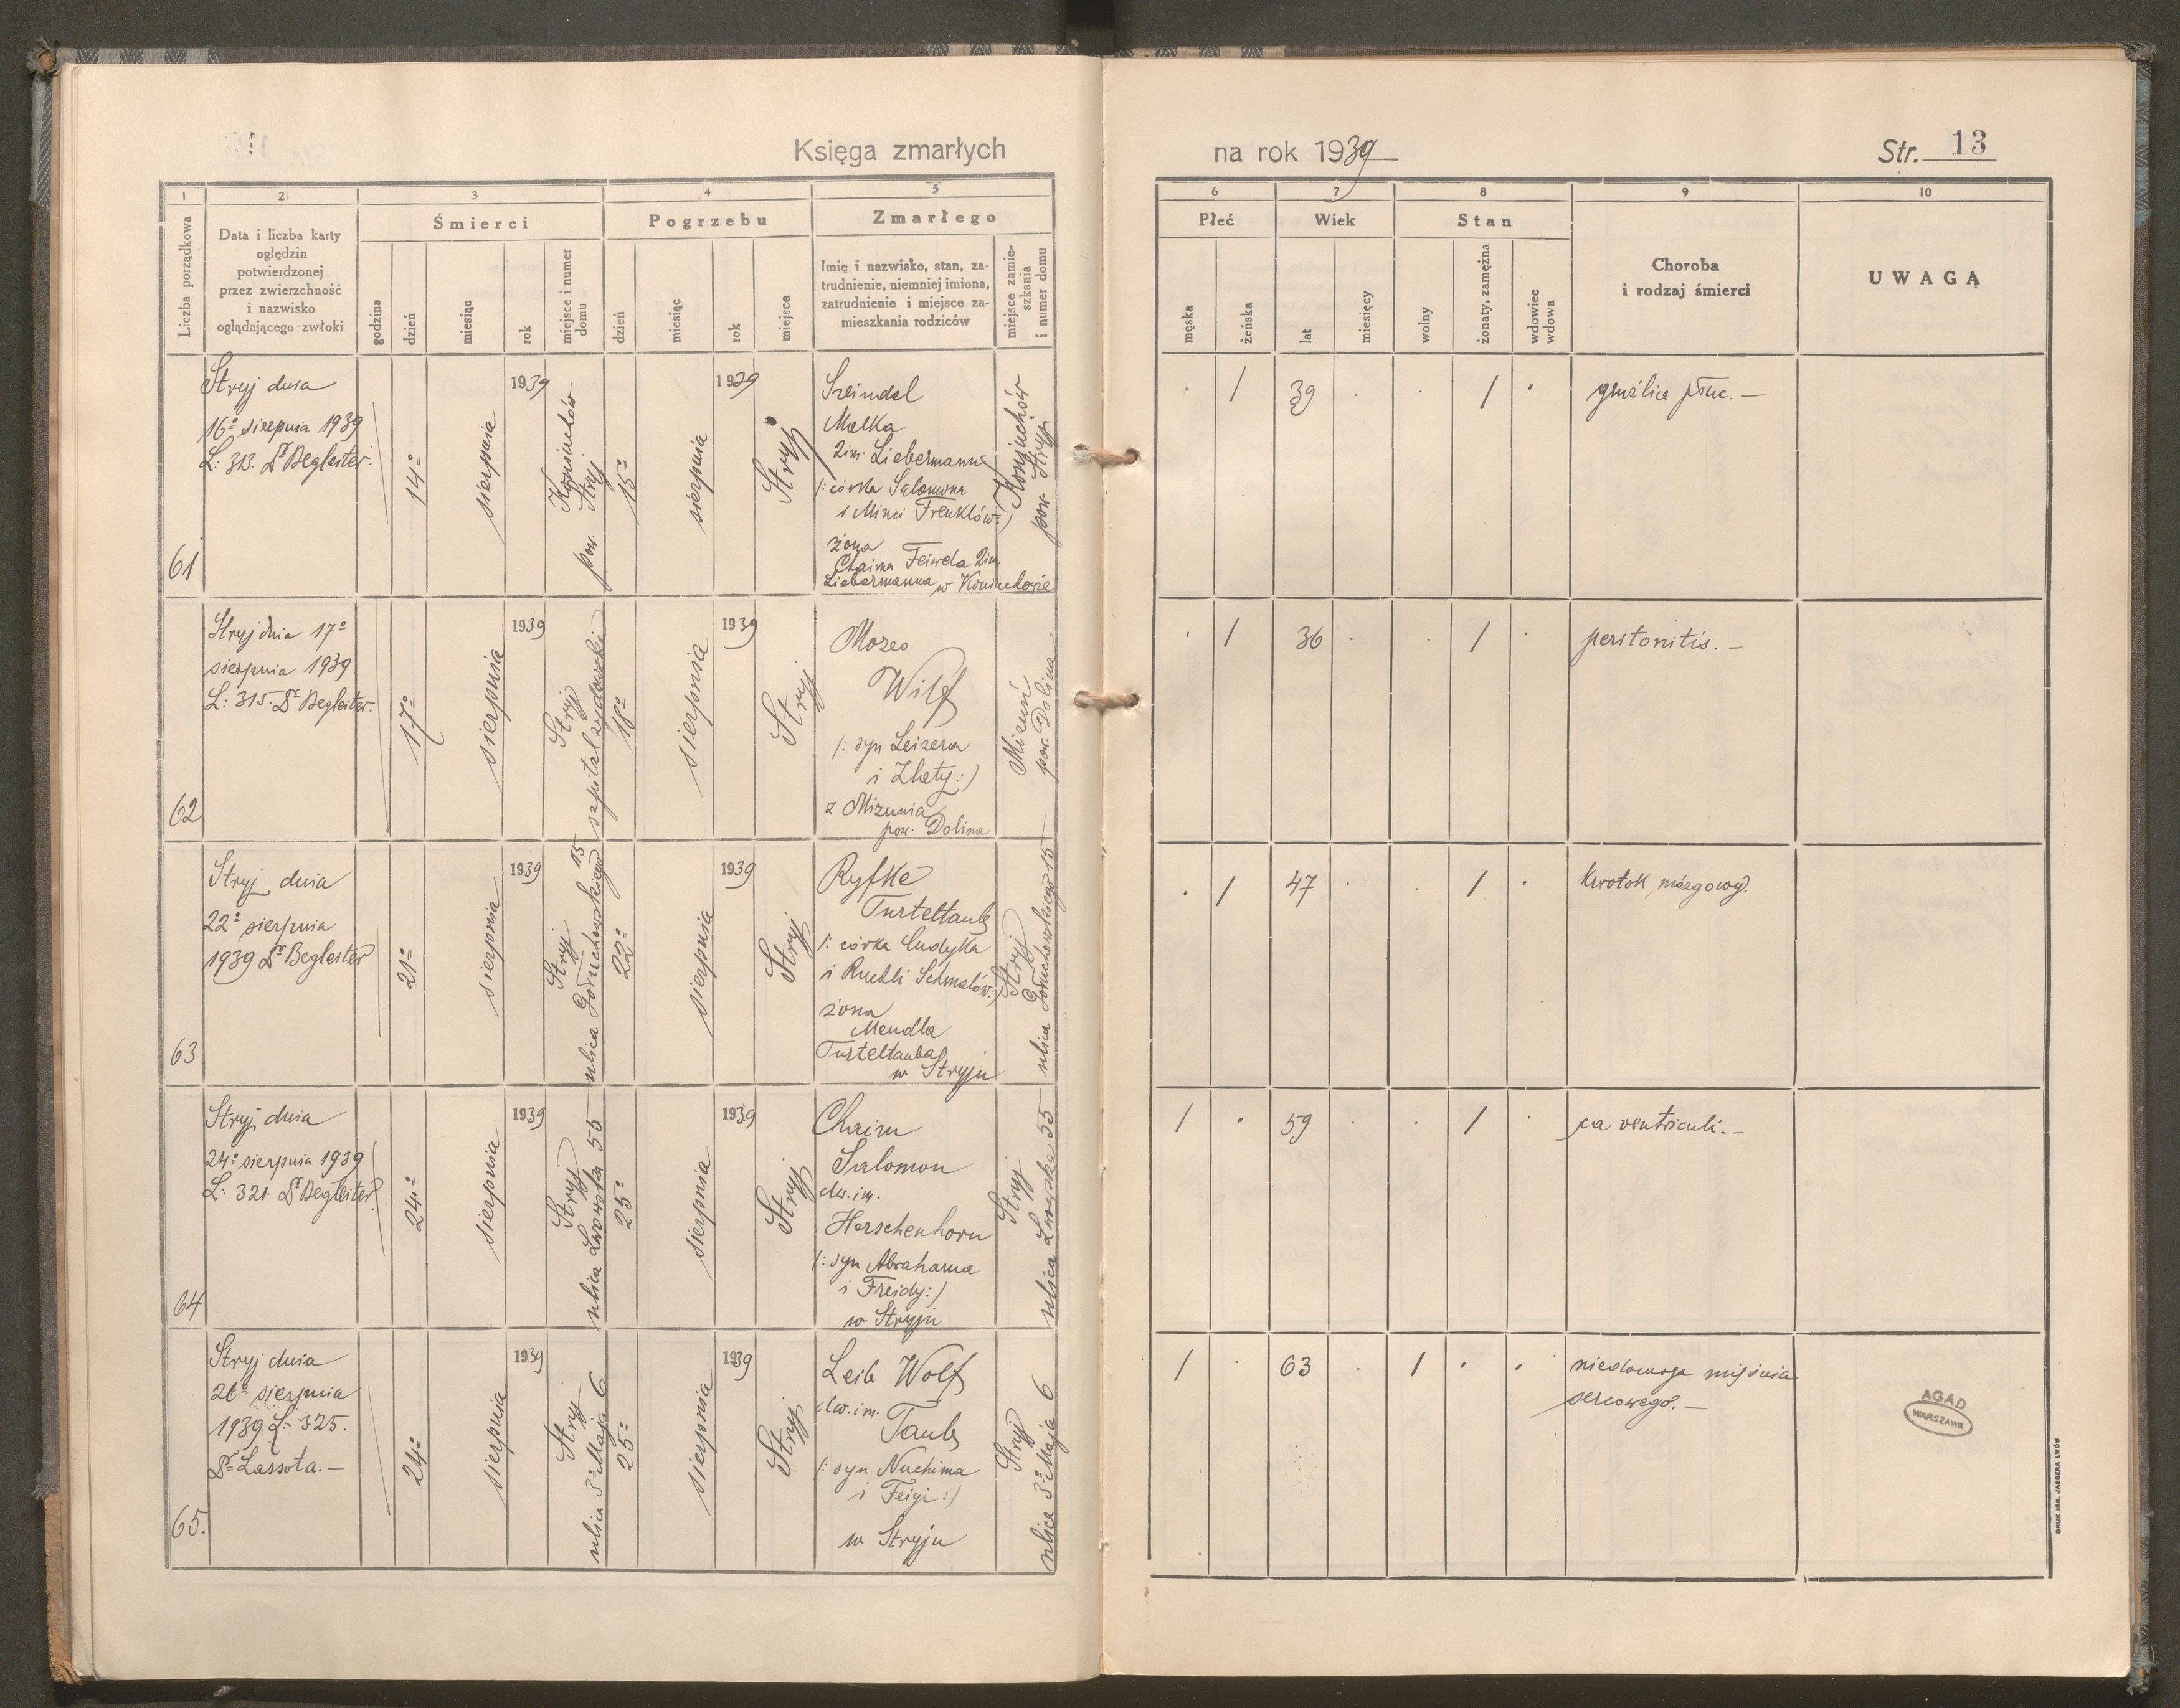 Księga zmarłych
na rok 1939
Str. 13
1 2 3 4 5 6 7 8 9 10
Liczba porządkowa
Data i liczba karty
oględzin
potwierdzonej
przez zwierzchność
i nazwisko
oglądającego zwłoki
Śmierci
godzina
dzień
miesiąc
rok
miejsce i numer
domu
Pogrzebu
dzień
miesiąc
rok
miejsce
Zmarłego
Imię i nazwisko, stan, za-
trudnienie, niemniej imiona,
zatrudnienie i miejsce za-
mieszkania rodziców
miejsce zamie-
szkania
i numer domu
Płeć
męska
żeńska
Wiek
lat
miesięcy
Stan
wolny
żonaty, zamężna
wdowiec
wdowa
Choroba
i rodzaj śmierci
UWAGA
61
Stryj dnia
16º sierpnia 1939
L: 313. Dr Begleiter.
14º
sierpnia
1939
Koniuchów
pow. Stryj
15º
sierpnia
1939
Stryj
Szeindel
Malka
2im. Liebermann
/: córka Salomona
i Minci Frenklów:/
żona
Chaima Feiwela 2im
Liebermanna w Koniuchowie
Koniuchów
pow. Stryj
/
39
/
gruźlica płuc. —
62
Stryj dnia 17º
sierpnia 1939
L: 315. Dr Begleiter.
17º
sierpnia
1939
Stryj
szpital żydowski
18º
sierpnia
1939
Stryj
Mozes
Wilf
/: syn Leizera
i Zlaty:/
z Mizunia
pow. Dolina
Mizuń
pow. Dolina
/
36
/
peritonitis. —
63
Stryj dnia
22º sierpnia
1939 Dr Begleiter
21º
sierpnia
1939
Stryj
ulica Gołuchowskiego 15
22º
sierpnia
1939
Stryj
Ryfke
Turteltaub
/: córka Cudyka
i Ruchli Schmalów:/
żona
Mendla
Turteltauba
w Stryju
Stryj
ulica Gołuchowskiego 15
/
47
/
krwotok mózgowy.
64
Stryj dnia
24º sierpnia 1939
L: 321. Dr Begleiter.
24º
sierpnia
1939
Stryj
ulica Lwowska 55
25º
sierpnia
1939
Stryj
Chaim
Salomon
dw. im.
Herschenhorn
/: syn Abrahama
i Freidy:/
w Stryju
Stryj
ulica Lwowska 55
/
59
/
ca ventriculi. —
65.
Stryj dnia
26º sierpnia
1939 L: 325.
Dr Lassota. —
24º
sierpnia
1939
Stryj
ulica 3º Maja 6
25º
sierpnia
1939
Stryj
Leib Wolf
dw. im.
Taub
/: syn Nuchima
i Feigi:/
w Stryju
Stryj
ulica 3º Maja 6
/
63
/
niedomoga mięśnia
sercowego. —
AGAD
WARSZAWA
DRUK IGN. JAEGERA LWÓW